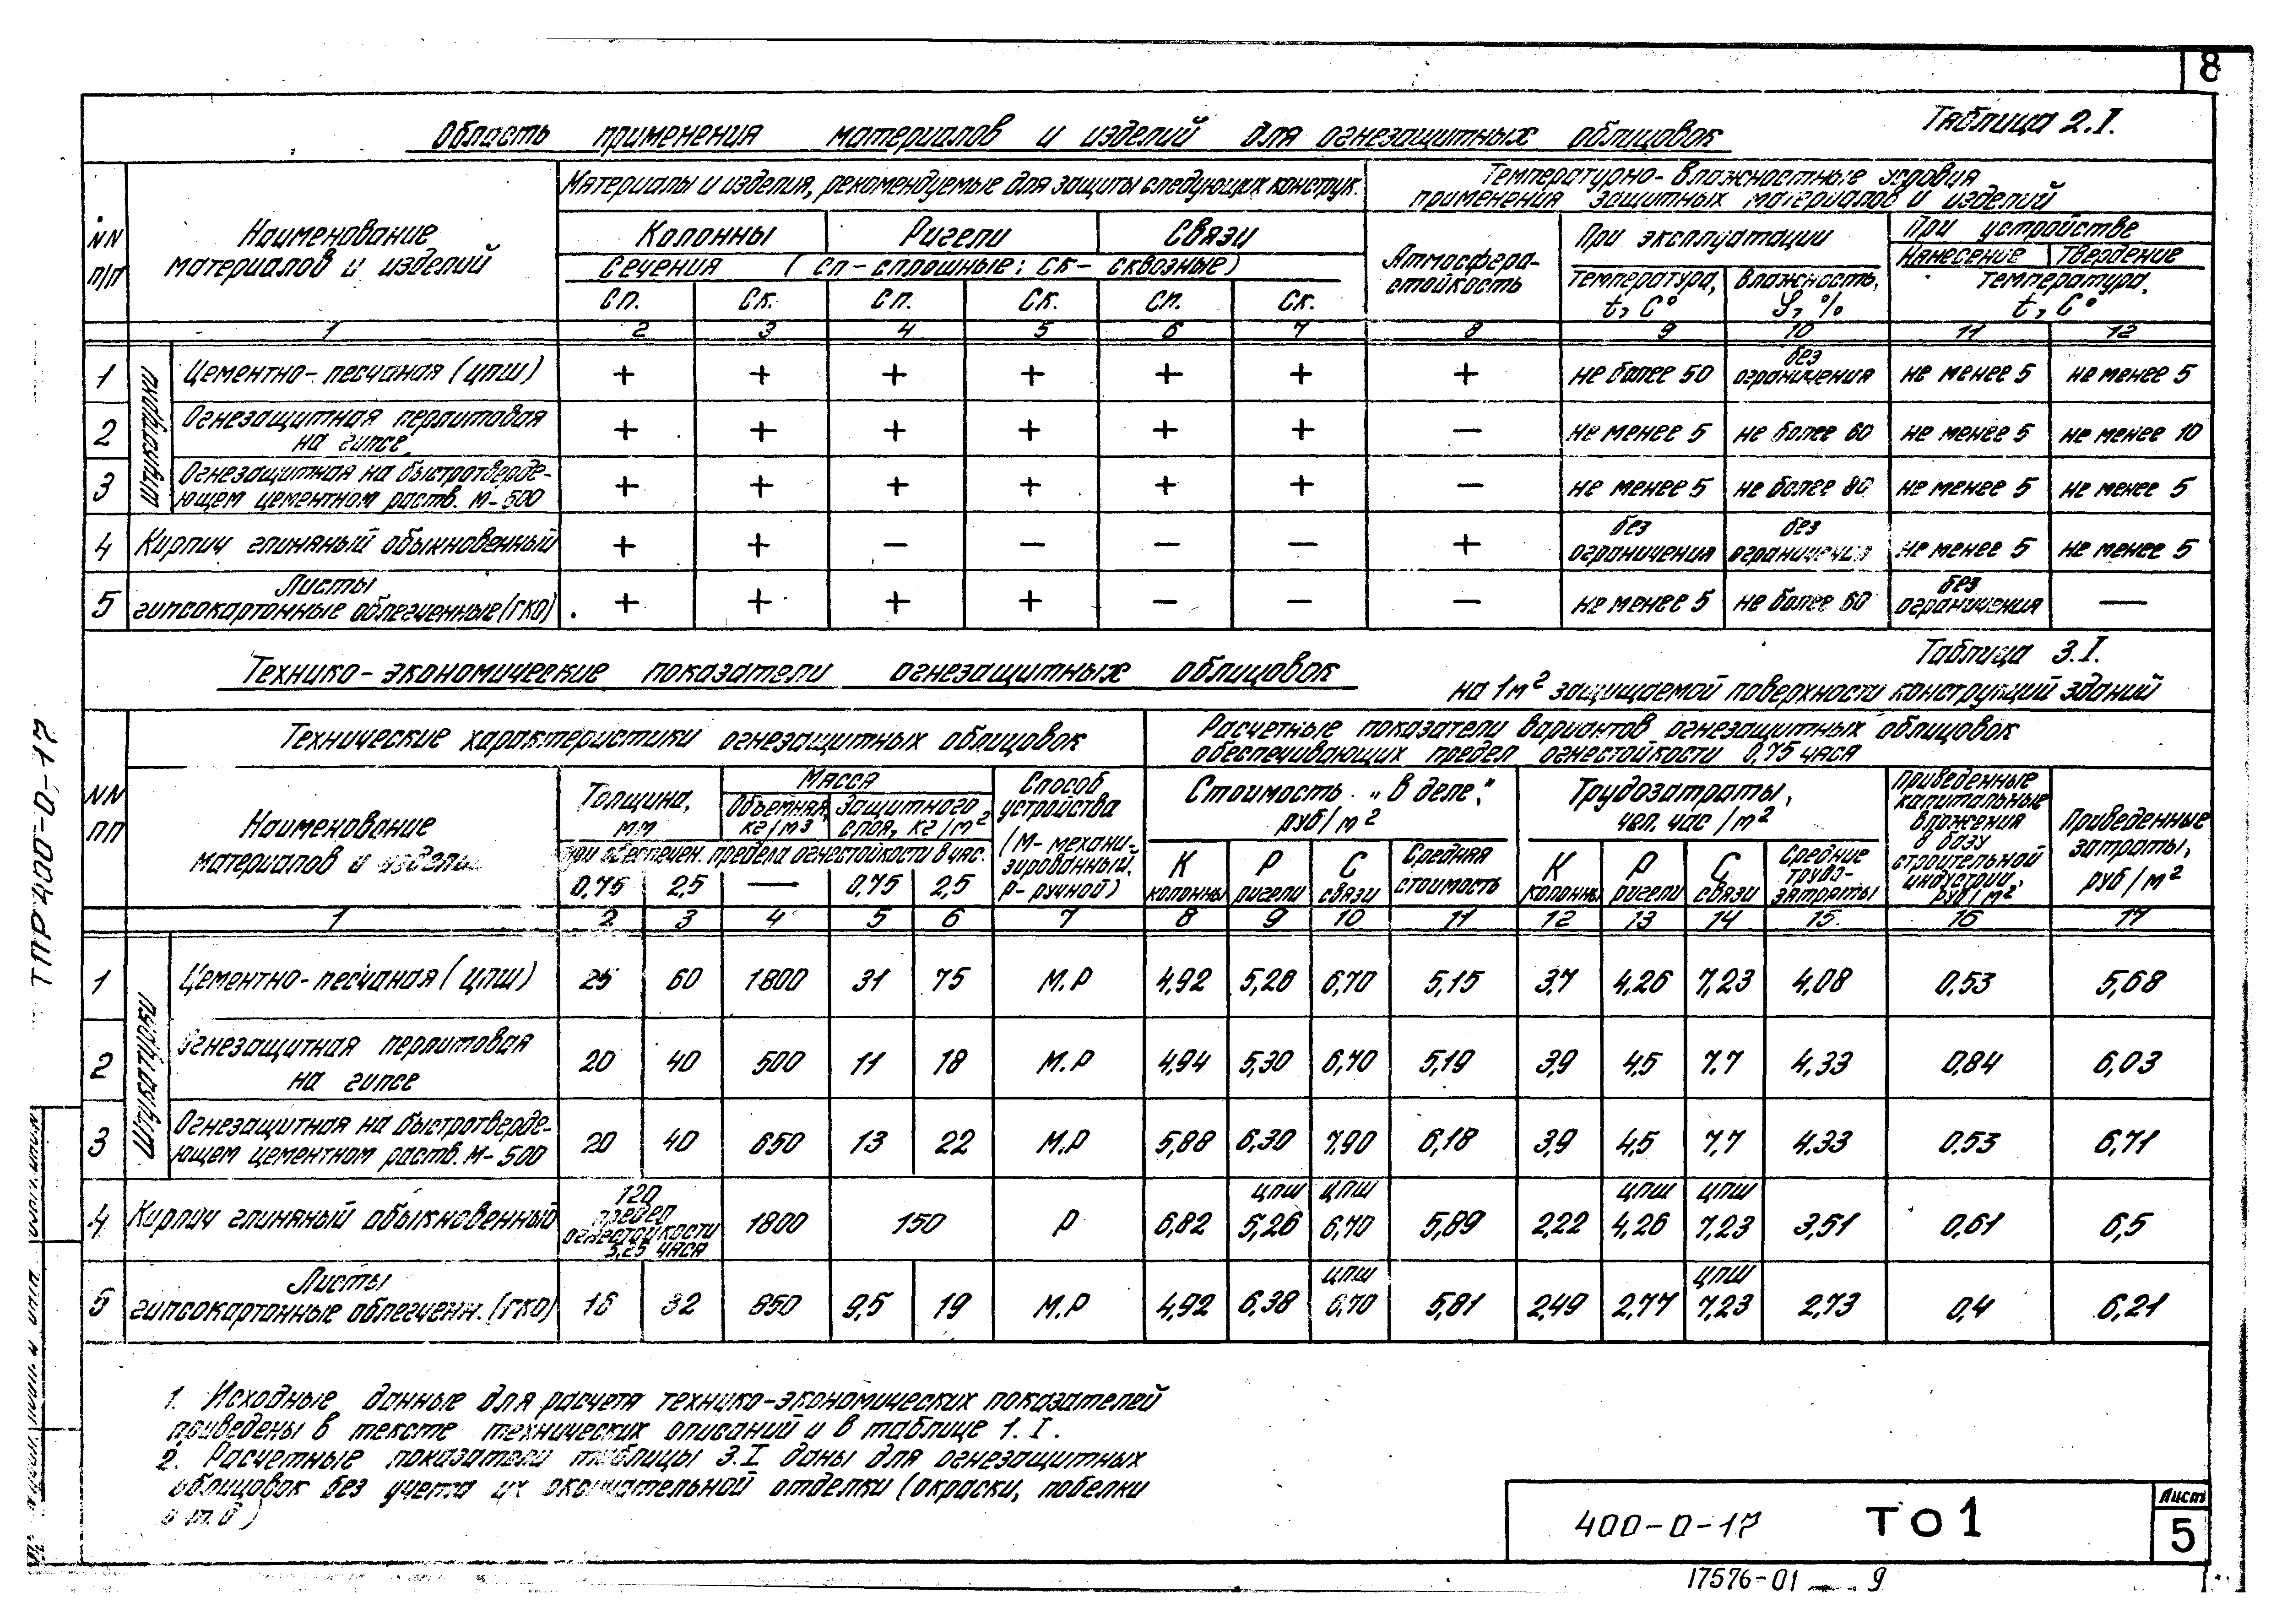 8
Таблица 2.I.
Область применения материалов и изделий для огнезащитных облицовок
NN п/п
Наименование материалов и изделий
Материалы и изделия, рекомендуемые для защиты следующих конструк.
Температурно-влажностные условия
применения защитных материалов и изделий
Колонны Ригели Связи
Сечения (сп-сплошные; ск-сквозные)
Сп. Ск. Сп. Ск. Сп. Ск.
Атмосферо-
стойкость
При эксплуатации
Температура, t, С° Влажность, φ, %
При устройстве
Нанесение Твердение
Температура, t, С°
1 2 3 4 5 6 7 8 9 10 11 12
Штукатурки
1 Цементно-песчаная (цпш) + + + + + + + не более 50 без ограничения не менее 5 не менее 5
2 Огнезащитная перлитовая на гипсе + + + + + + — не менее 5 не более 60 не менее 5 не менее 10
3 Огнезащитная на быстротверде-
ющем цементном раств. М-500 + + + + + + — не менее 5 не более 80 не менее 5 не менее 5
4 Кирпич глиняный обыкновенный + + — — — — + без ограничения без ограничения не менее 5 не менее 5
5 Листы гипсокартонные облегченные (гко) + + + + — — — не менее 5 не более 60 без ограничения —
Таблица 3.I.
Технико-экономические показатели огнезащитных облицовок
на 1м² защищаемой поверхности конструкций зданий
NN пп
Технические характеристики огнезащитных облицовок
Расчетные показатели вариантов огнезащитных облицовок
обеспечивающих предел огнестойкости 0,75 часа
Наименование материалов и изделий
Толщина, мм
Масса
Объемная, кг/м3 Защитного слоя, кг/м²
при обеспечен. предела огнестойкости в час.
0,75 2,5 — 0,75 2,5
Способ устройства (М-механи-
зированный, Р-ручной)
Стоимость „в деле," руб/м²
К колонны Р ригели С связи Средняя стоимость
Трудозатраты, чел. час/м²
К колонны Р ригели С связи Средние трудо-
затраты
Приведенные капитальные вложения в базу строительной индустрии, руб/м²
Приведенные затраты, руб/м²
1 2 3 4 5 6 7 8 9 10 11 12 13 14 15 16 17
Штукатурки
1 Цементно-песчаная (цпш) 25 60 1800 31 75 М.Р 4,92 5,26 6,70 5,15 3,7 4,26 7,23 4,08 0,53 5,68
2 Огнезащитная перлитовая на гипсе 20 40 500 11 18 М.Р 4,94 5,30 6,70 5,19 3,9 4,5 7.7 4,33 0,84 6,03
3 Огнезащитная на быстротверде-
ющем цементном раств. М-500 20 40 650 13 22 М.Р 5,88 6,30 7,90 6,18 3,9 4,5 7,7 4,33 0,53 6,71
4 Кирпич глиняный обыкновенный 120 предел огнестойкости 5,25 часа 1800 150 Р 6,82 цпш 5,26 цпш 6,70 5,89 2,22 цпш 4,26 цпш 7,23 3,51 0,61 6,5
5 Листы гипсокартонные облегченн. (гко) 16 32 850 9,5 19 М.Р 4,92 6,38 цпш 6,70 5,81 2,49 2,77 цпш 7,23 2,73 0,4 6,21
1. Исходные данные для расчета технико-экономических показателей
приведены в тексте технических описаний и в таблице 1.I.
2. Расчетные показатели таблицы 3.I даны для огнезащитных
облицовок без учета их окончательной отделки (окраски, побелки
и т.д)
400-0-17 ТО1
Лист
5
17576-01 9
ТПР 400-0-17